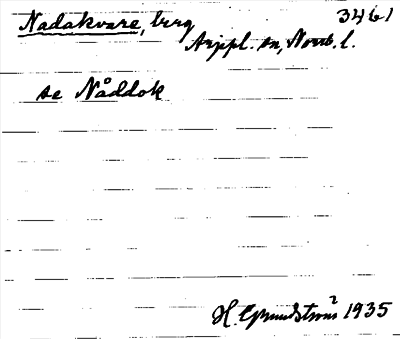 Nadakvare, berg 3461
Arjpl. sn, Norrb. l.
se Nåddok
H. Grundström 1935